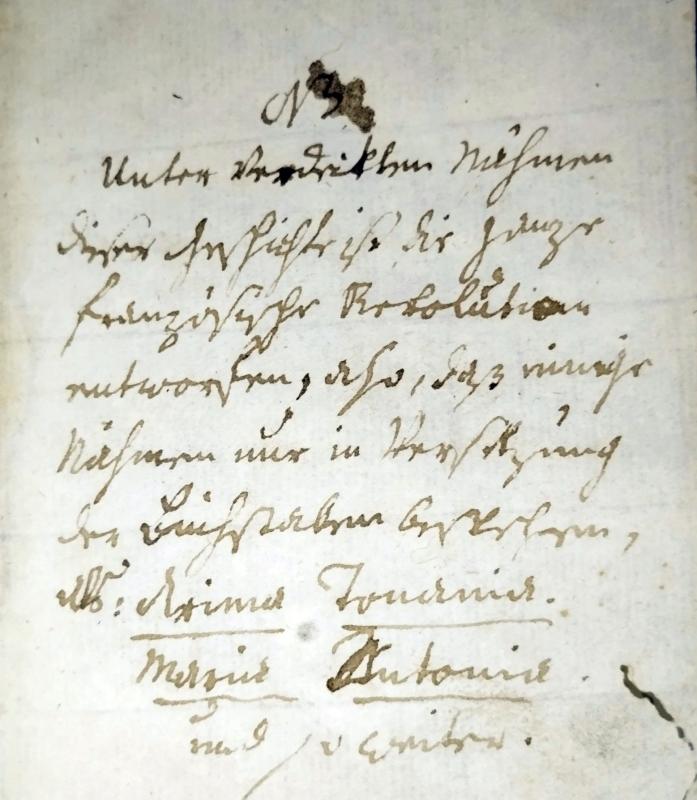 NB
Unter verdekten Nähmen
dieser Geschichte ist die ganze
französische Revolution
entworfen, also, daß einige
Nähmen nur in Versetzung
der Buchstaben bestehen,
als: Arima Tonania.
Maria Antonia.
und so weiter.